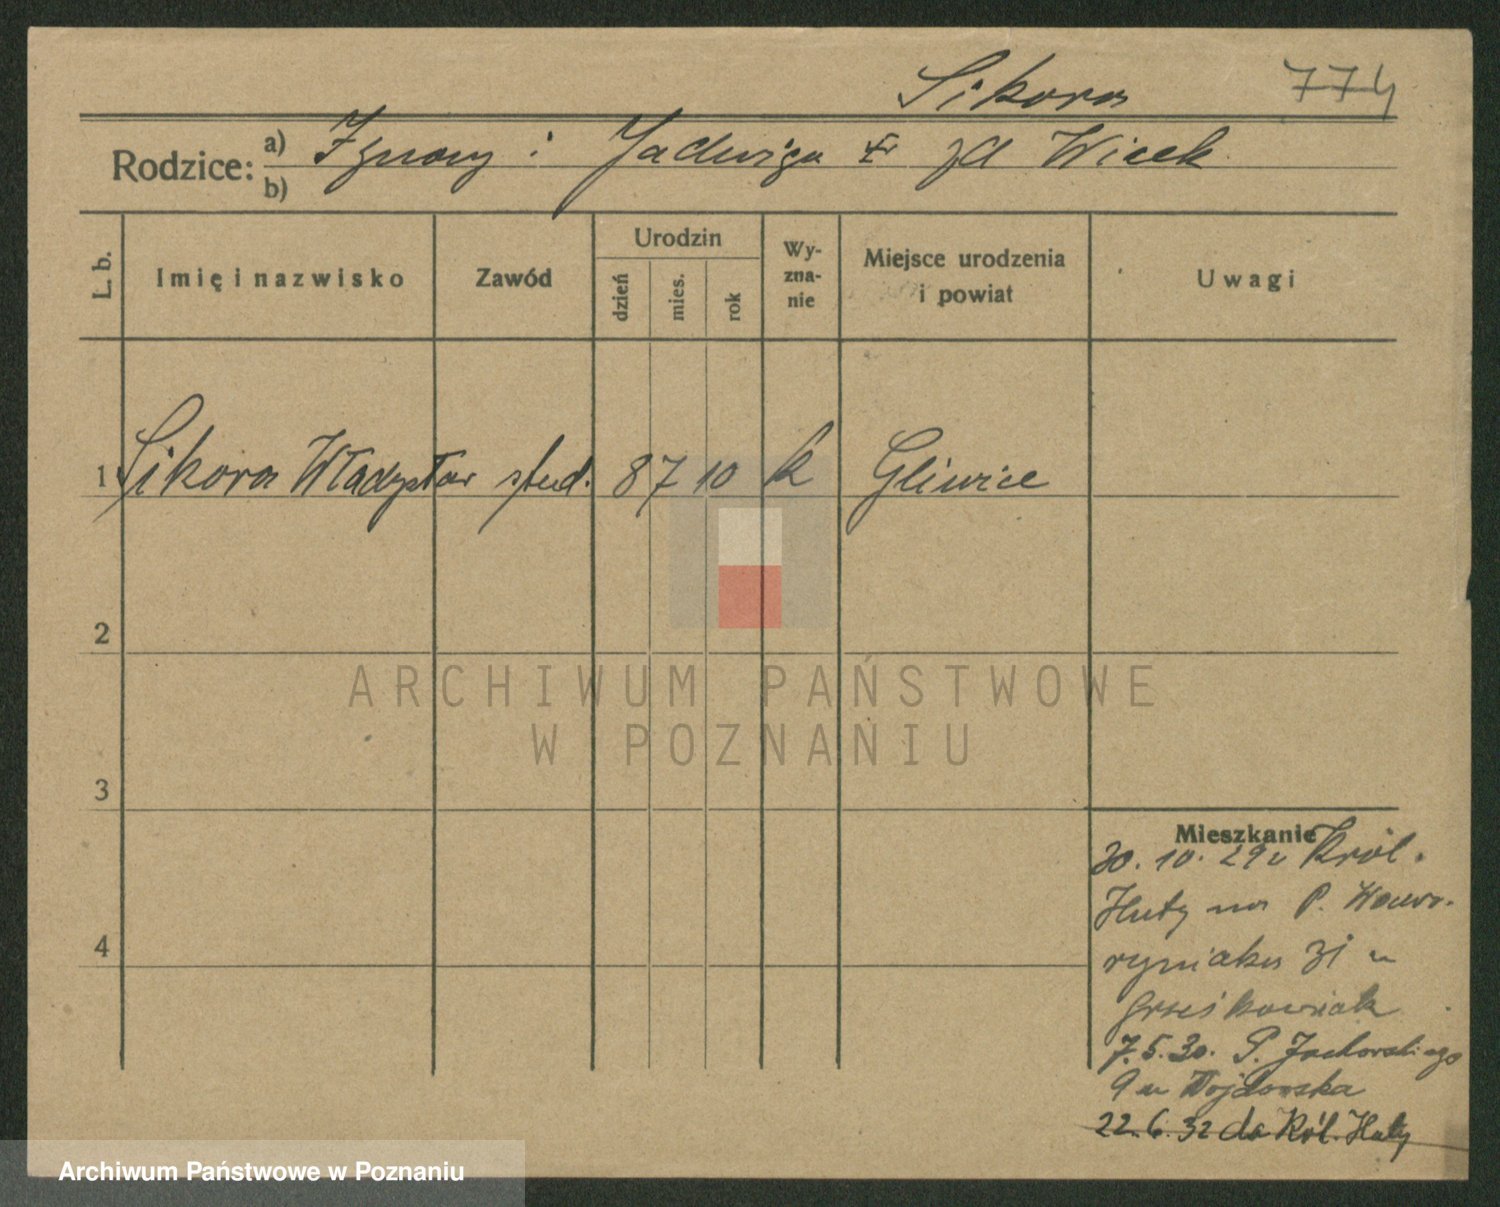 Sikora 774
Rodzice: a) Ignacy i Jadwiga zd Wicek
b)
L. b. Imię i nazwisko Zawód Urodzin dzień mies. rok Wy-zna-nie Miejsce urodzenia i powiat Uwagi
1 Sikora Władysław stud. 8 7 10 k Gliwice
2
ARCHIWUM PAŃSTWOWE
W POZNANIU
3
Mieszkanie
30. 10. 29 z Król.
Huty na P. Wawrzy-
4
31 u
7.5.30. P.
9 u Wojdowska
22.6.32 do Król. Huty
Archiwum Państwowe w Poznaniu